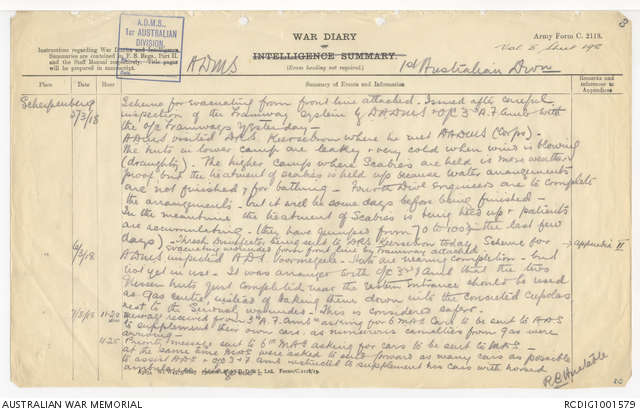 A.D.M.S.,
1st AUSTRALIAN
DIVISION.
WAR DIARY
or
INTELLIGENCE SUMMARY.
(Erase heading not required.)
Army Form C. 2118.
Instructions regarding War Diaries and Intelligence
Summaries are contained in F. S. Regs., Part II.
and the Staff Manual respectively. Title pages
will be prepared in manuscript.
ADMS
1st Australian Divn
Place
Date
Hour
Summary of Events and Information
Remarks and
references to
Appendices
Scherpenberg
5/3/18
Scheme for evacuating from front line attached. Issued after careful
inspection of the tramway system by DADMS & O/C 3rd A.F. Amb with
the O/C Tramways yesterday -
ADMS visited DRS where he met DADMS (Corps).
The huts in lower camp are leaky & very cold when wind is blowing
(draughty). The higher camps where Scabies are held is more weather
proof but the treatment of scabies is held up because water arrangements
are not finished & for bathing - Fourth Divl Engineers are to complete
the arrangements - but it will be some days before being finished -
In the meantime the treatment of Scabies is being held up & patients
are accumulating - (they have jumped from 70 to 100 in the last few
days) - Thresh Disinfector being sent to DRS today Scheme for
evacuating wounded from front line by tramway attached
Appendix II
6/3/18
ADMS inspected ADS Voormezeele - are nearing completion - but
not yet in use - It was arranged with O/C 3rd F Amb that the two
Nissen huts just completed near the entrance should be used
as Gas centre, instead of taking them down into the
next to the wounded - This is considered safer -
7/3/18
11.20
Message received from 3rd A.F. Amb asking for 6 MAC Cars to be sent to ADS
to supplement their own cars as numerous casualties from gas were
arriving -
11.25
Priority message sent to 6th MAC asking for cars to be sent to ADS -
at the same time were asked to send forward as many cars as possible
to assist ADS & O/C 3rd F Amb instructed to supplement his cars with horsed
ambulance wagons